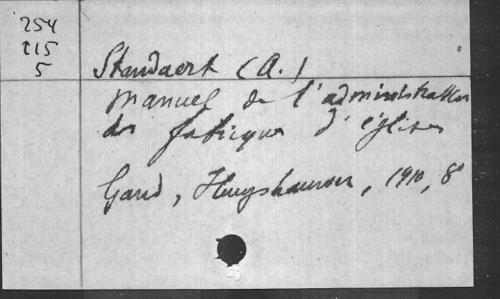 254
215
5
Standaert (A.)
Manuel de l'administration
des fabriques d'églises
Gand, Huyshauwer, 1910, 8°